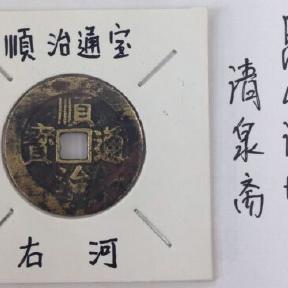 順治通宝
順
寳通
治
右河
清泉斋